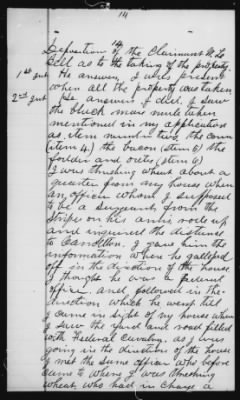 14
14
Deposition of the Claimant M. L.
Bell as to the taking of the property.
1st Int He answers, I was present
when all the property was taken
2nd Int He answers I did. I saw
the black mare mule taken
mentioned in my application
as item number two, the corn
(item 4.) the bacon (item 5) the
fodder and oats, (item 6)
I was thrashing wheat about a
quarter from my house when
an officer whom I supposed
to be a sergeant from the
stripe on his arm, rode up
and inquired the distance
to Carrollton. I gave him the
information where he galloped
off in the direction of the house
I thought he was a federal
officer and followed in the
direction which he went till
I came in sight of my house when
I saw the yard and road filled
with Federal Cavalry, as I was
going in the direction of the house
I met the same officer who before
came to where I was thrashing
wheat who had in charge a